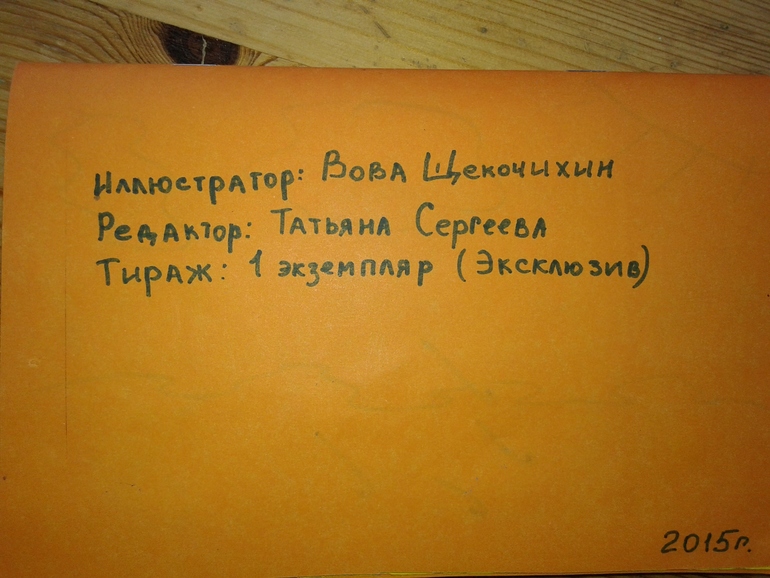 Иллюстратор: Вова Щекочихин
Редактор: Татьяна Сергеева
Тираж: 1 экземпляр (Эксклюзив)
2015г.